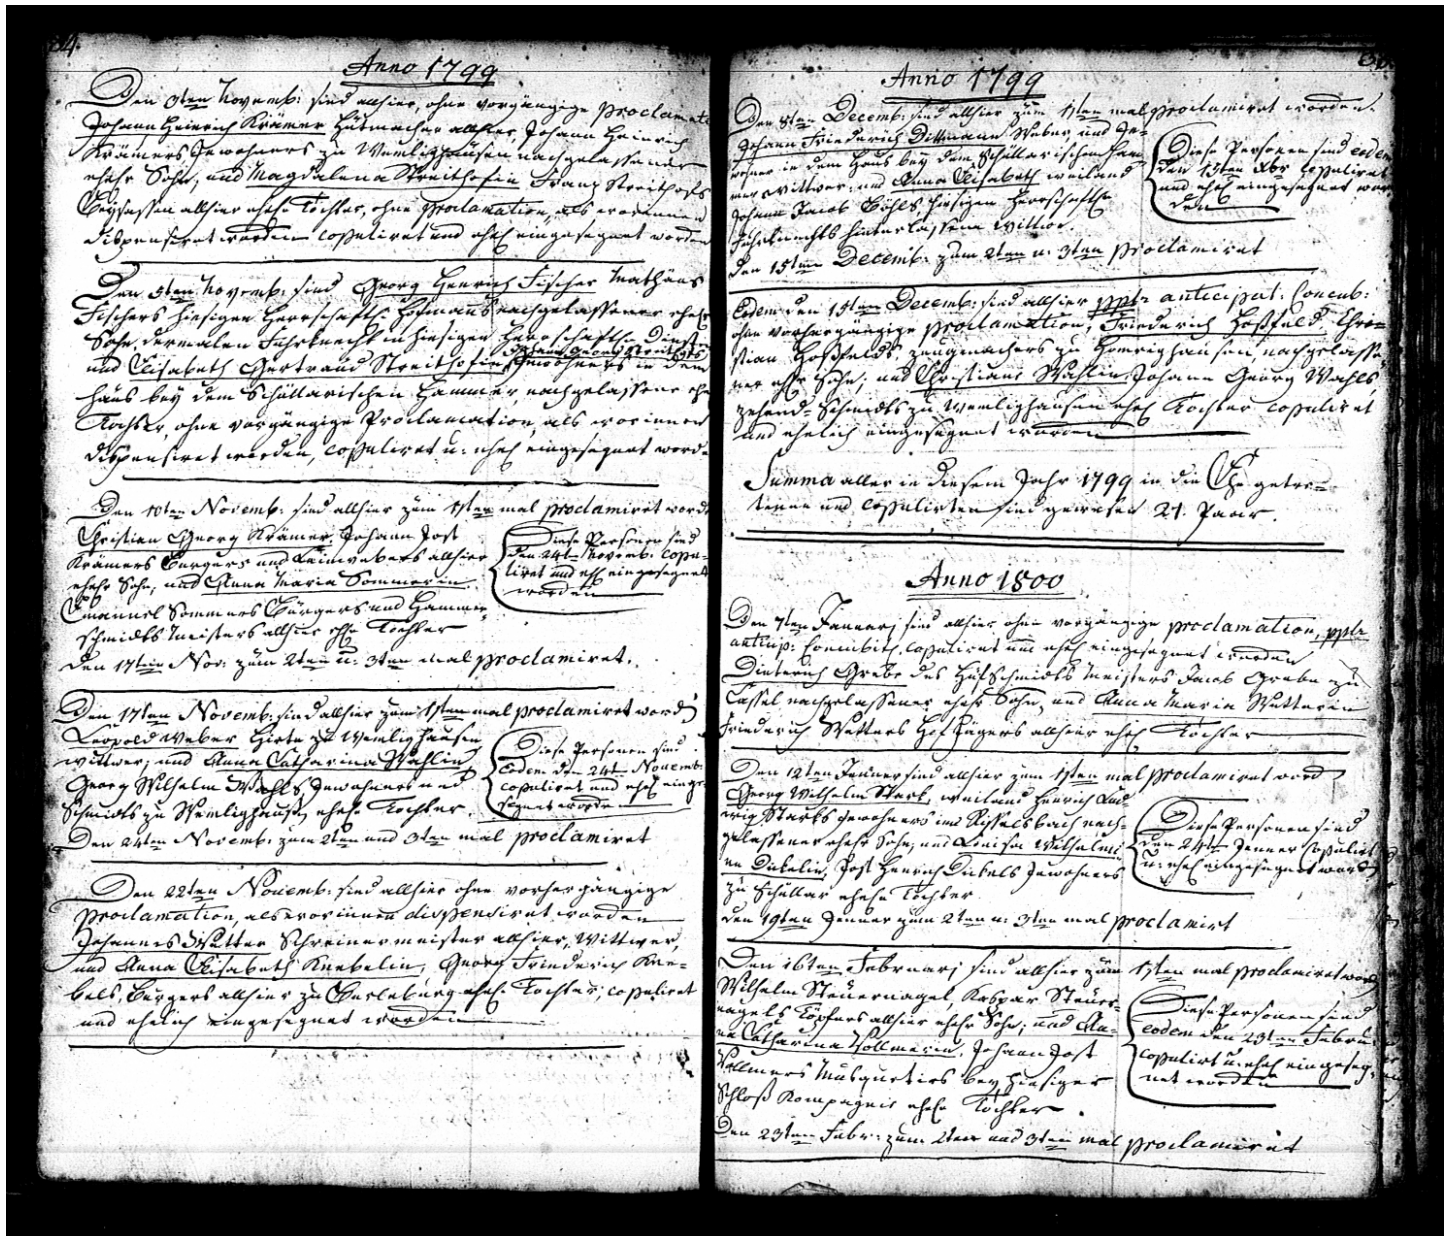 84.
Anno 1799
Den 3ten Novemb: sind allhier, ohne vorgängige proclamat
Johann Heinrich Krämer Hutmacher allhier, Johann Heinrich
Krämers Inwohners zu Wemlighausen nachgelassener
ehel Sohn, und Magdalena Streithofin Franz Streithofs
Beysassen allhier ehel Tochter, ohne Proclamation, als worinnen
dispensiret worden copuliret und ehel eingesegnet worden
Den 5ten Novemb: sind Georg Henrich Fischer Mathäus
Fischers hiesigen Herrschaftl: Hofmanns nachgelassener ehel
Sohn, dermalen Fuhrknecht in hiesigen Herrschaftl Diensten
und Elisabeth Gertraud Streithofin, Johann Georg Streithofs Inwohners in dem
Haus bey dem Schüllarischen Hammer nachgelassene ehe
Tochter, ohne vorgängige Proclamation, als worinnen
dispensiret worden, copuliret u: ehel eingesegnet word
Den 10ten Novemb: sind allhier zum 1sten mal proclamiret word
Christian Georg Krämer, Johann Jost
Krämers Burgers und Leinwebers allhier
ehel Sohn, und Anna Maria Sommerin
Emanuel Sommers Bürgers und Hammer-
schmidts Meisters allhier ehel Tochter
Diese Personen sind
den 24ten Novemb: copu-
liret und ehel eingesegnet
worden
Den 17ten Nov: zum 2ten u: 3ten mal proclamiret.
Den 17ten Novemb: sind allhier zum 1sten mal proclamiret word
Leopold Weber Hirte zu Wemlighausen
wittwer, und Anna Catharina Wahlin
Georg Wilhelm Wahls, Inwohners und
Schmidts zu Wemlighausen ehel Tochter
Diese Personen sind
eodem den 24ten Novemb:
copuliret und ehel einge-
segnet worden
Den 24ten Novemb: zum 2ten und 3ten mal proclamiret
Den 22ten Novemb: sind allhier ohne vorhergängige
proclamation, als worinnen dispensiret worden
Johannes Wetter Schreinermeister allhier, Wittwer,
und Anna Elisabeth Knebelin, Georg Friederich Kne-
bels, Burgers allhier zu Berleburg ehel Tochter, copuliret
und ehelich eingesegnet worden
Anno 1799
Den 8ten Decemb: sind allhier zum 1sten mal proclamiret worden
Johann Friederich Dittmann Weber und In-
wohner in dem Haus bey dem Schüllarischen Ham-
mer wittwer, und Anna Elisabeth weiland
Johann JacobBöhls, hiesigen Herrschaftl
Fuhrknechts hinterlassene Wittwe.
Diese Personen sind eodem
den 15ten Xbr copuliret
und ehel eingesegnet wor-
den
Den 15ten Decemb: zum 2ten u: 3ten proclamiret
Eodem den 15ten Decemb: sind allhier pptr anticipat: Concub:
ohne vorhergängige proclamation, Friederich Hoßfeld, Chris-
tian Hoßfelds, Zeugmachers zu Homrighausen, nachgelasse-
ner ehel Sohn, und Christiane Wahlin Johann Georg Wahls,
Schmidts zu Wemlighausen ehel Tochter copuliret
und ehelich eingesegnet worden
Summa aller in diesem Jahr 1799 in die Ehe getre-
tenen und copulirten sind gewesen 21 Paar.
Anno 1800
Den 7ten Januarj sind allhier ohne vorgängige proclamation, pptr
anticip: Concubit, copuliret und ehel eingesegnet worden
Dieterich Grebe des Hufschmidts Meisters Jacob Grebe zu
Cassel nachgelassener ehel Sohn, und Anna Maria Wetterin
Friederich Wetters Hof Jägers allhier ehel Tochter
Den 12ten Jenner sind allhier zum 1sten mal proclamiret word
Georg Wilhelm Stark, weiland Henrich Lud-
wig Starks Inwohners im Risselsbach nach-
gelassener ehel Sohn, und Louisa Wilhelmi-
na Dickelin, Jost Henrich Dickels Inwohners
zu Schüllar ehel Tochter
Diese Personen sind
den 24ten Jenner copuliret
u: ehel eingesegnet word
den 19ten Jenner zum 2ten u: 3ten mal proclamirt
Den 16ten Februarj sind allhier zum 1sten mal proclamiret word
Wilhelm Steuernagel, Kaspar Steuer-
nagels Töpfers allhier ehel Sohn, und An-
na Catharina Vollmerin, Johann Jost
Vollmers Musquetirs bey hiesiger
Schloß Kompagnie ehel Tochter.
Diese Personen sind
eodem den 23ten Febru:
copulirt u: ehel eingeseg-
net worden
Den 23ten Febr: zum 2ten und 3ten mal proclamiret